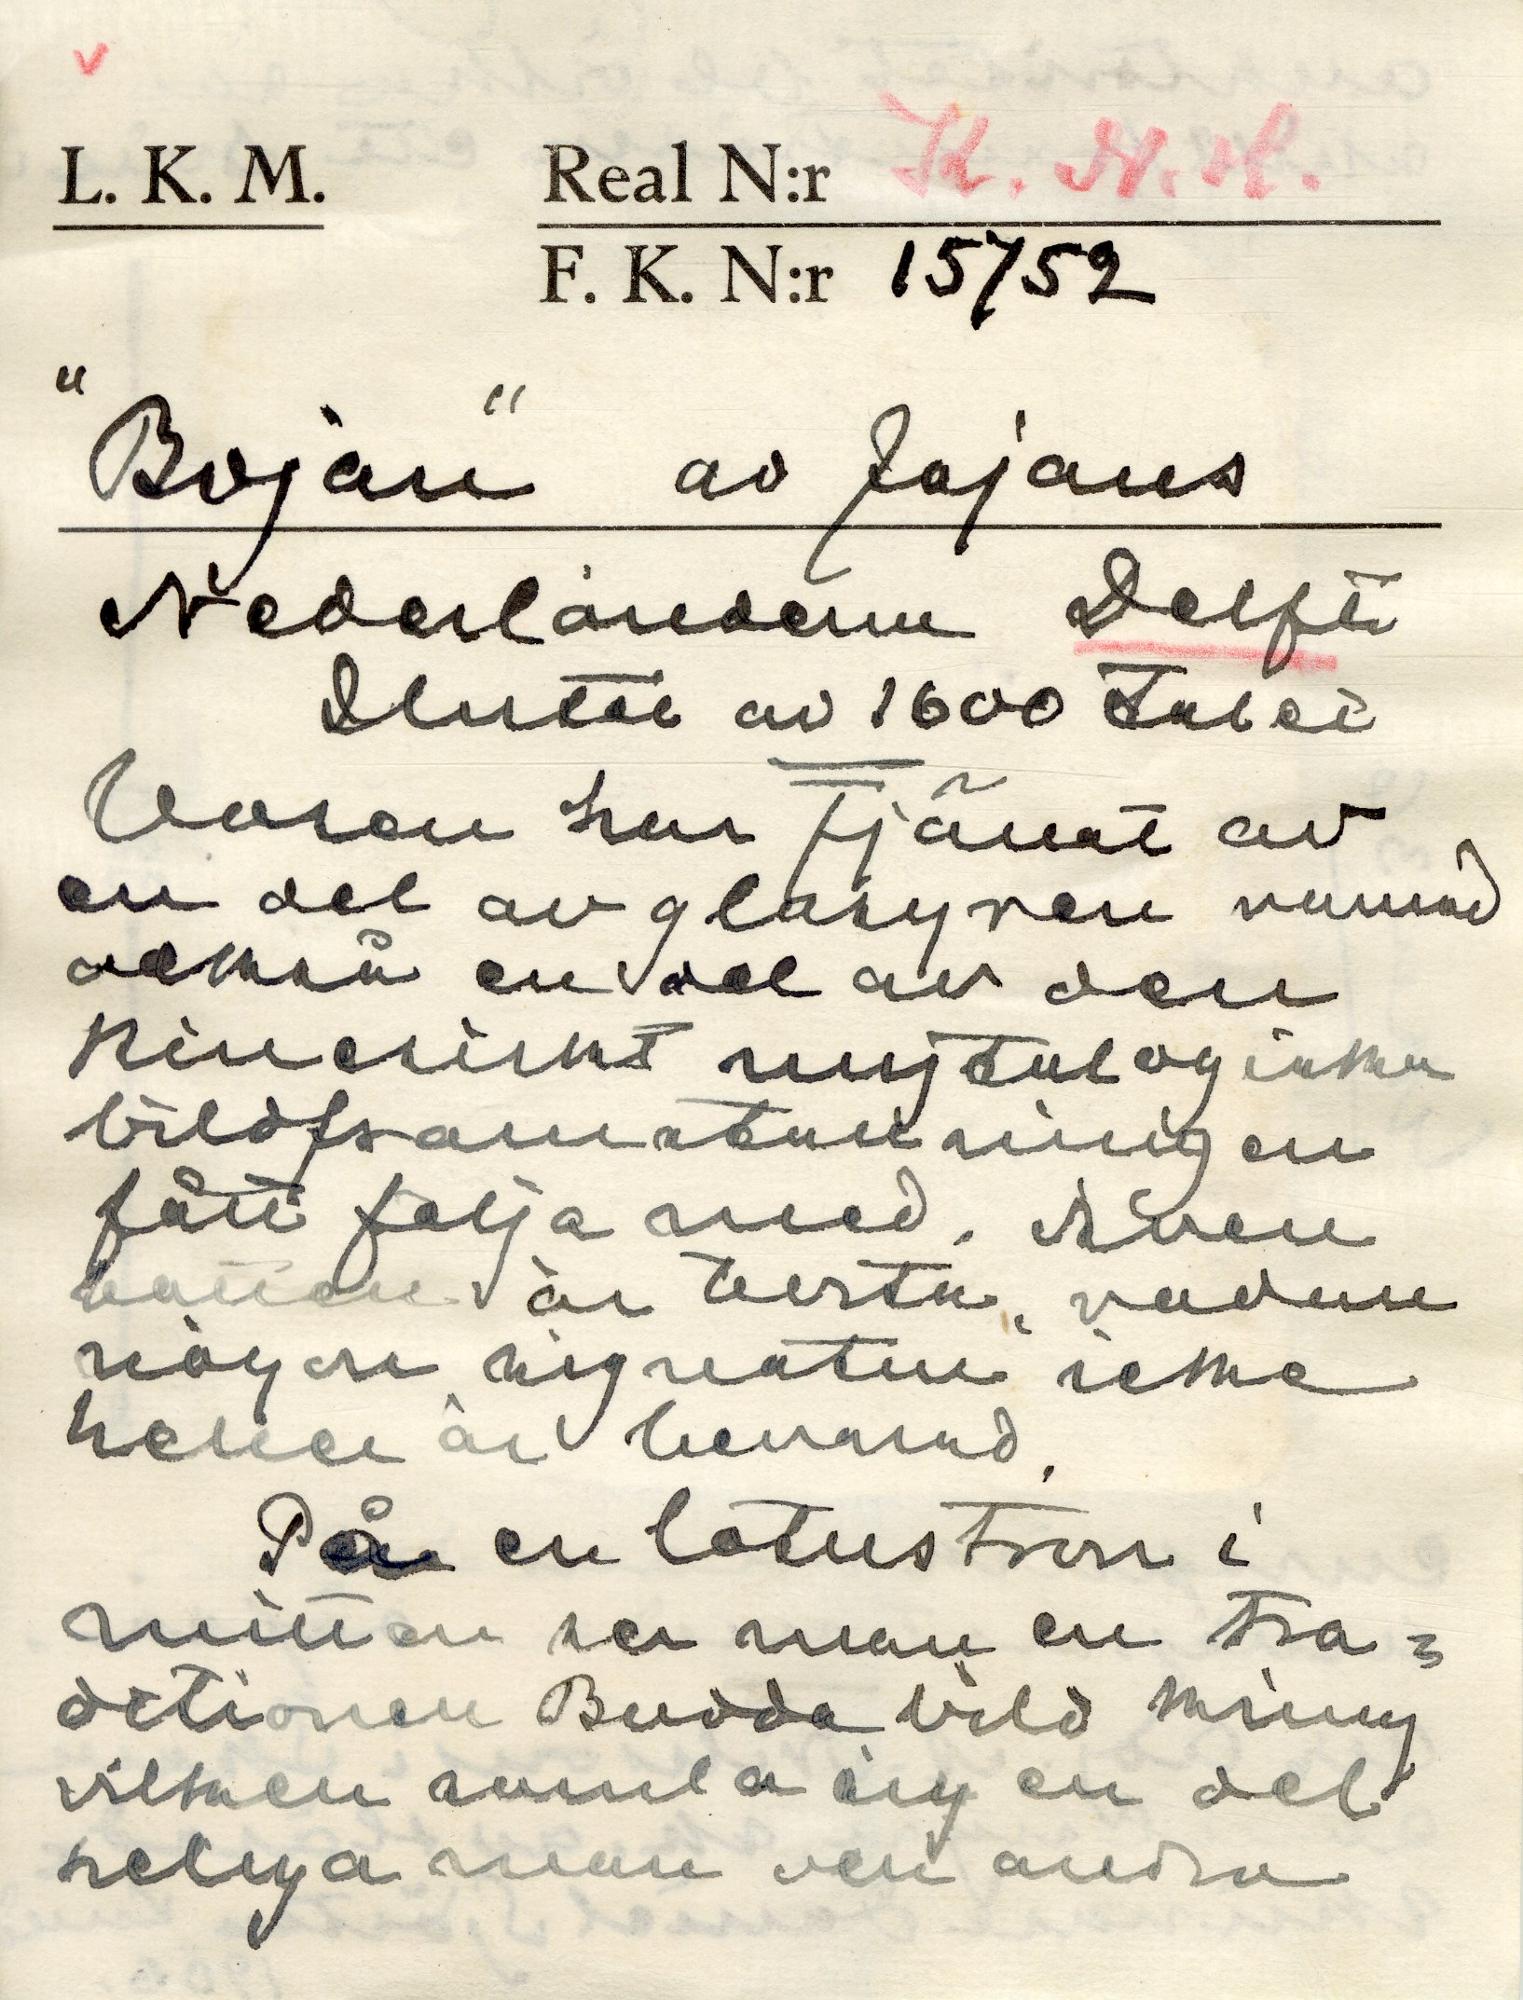 v
L. K. M. Real N:r K. N. H.
F. K. N:r 15752
"Bojan" av fajans
Nederländerna Delft
Slutet av 1600 talet
Vasen har tjänat av
en del av glasyren varvid
också en del av den
kinesiskt mytologiska
bildframställningen
fått följa med. Även
botten är borta, vadan
någon signatur icke
heller är bevarad.
På en lotustron i
mitten ser man en tra=
ditionen Budda bild kring
vilken samla sig en del
heliga män och andra